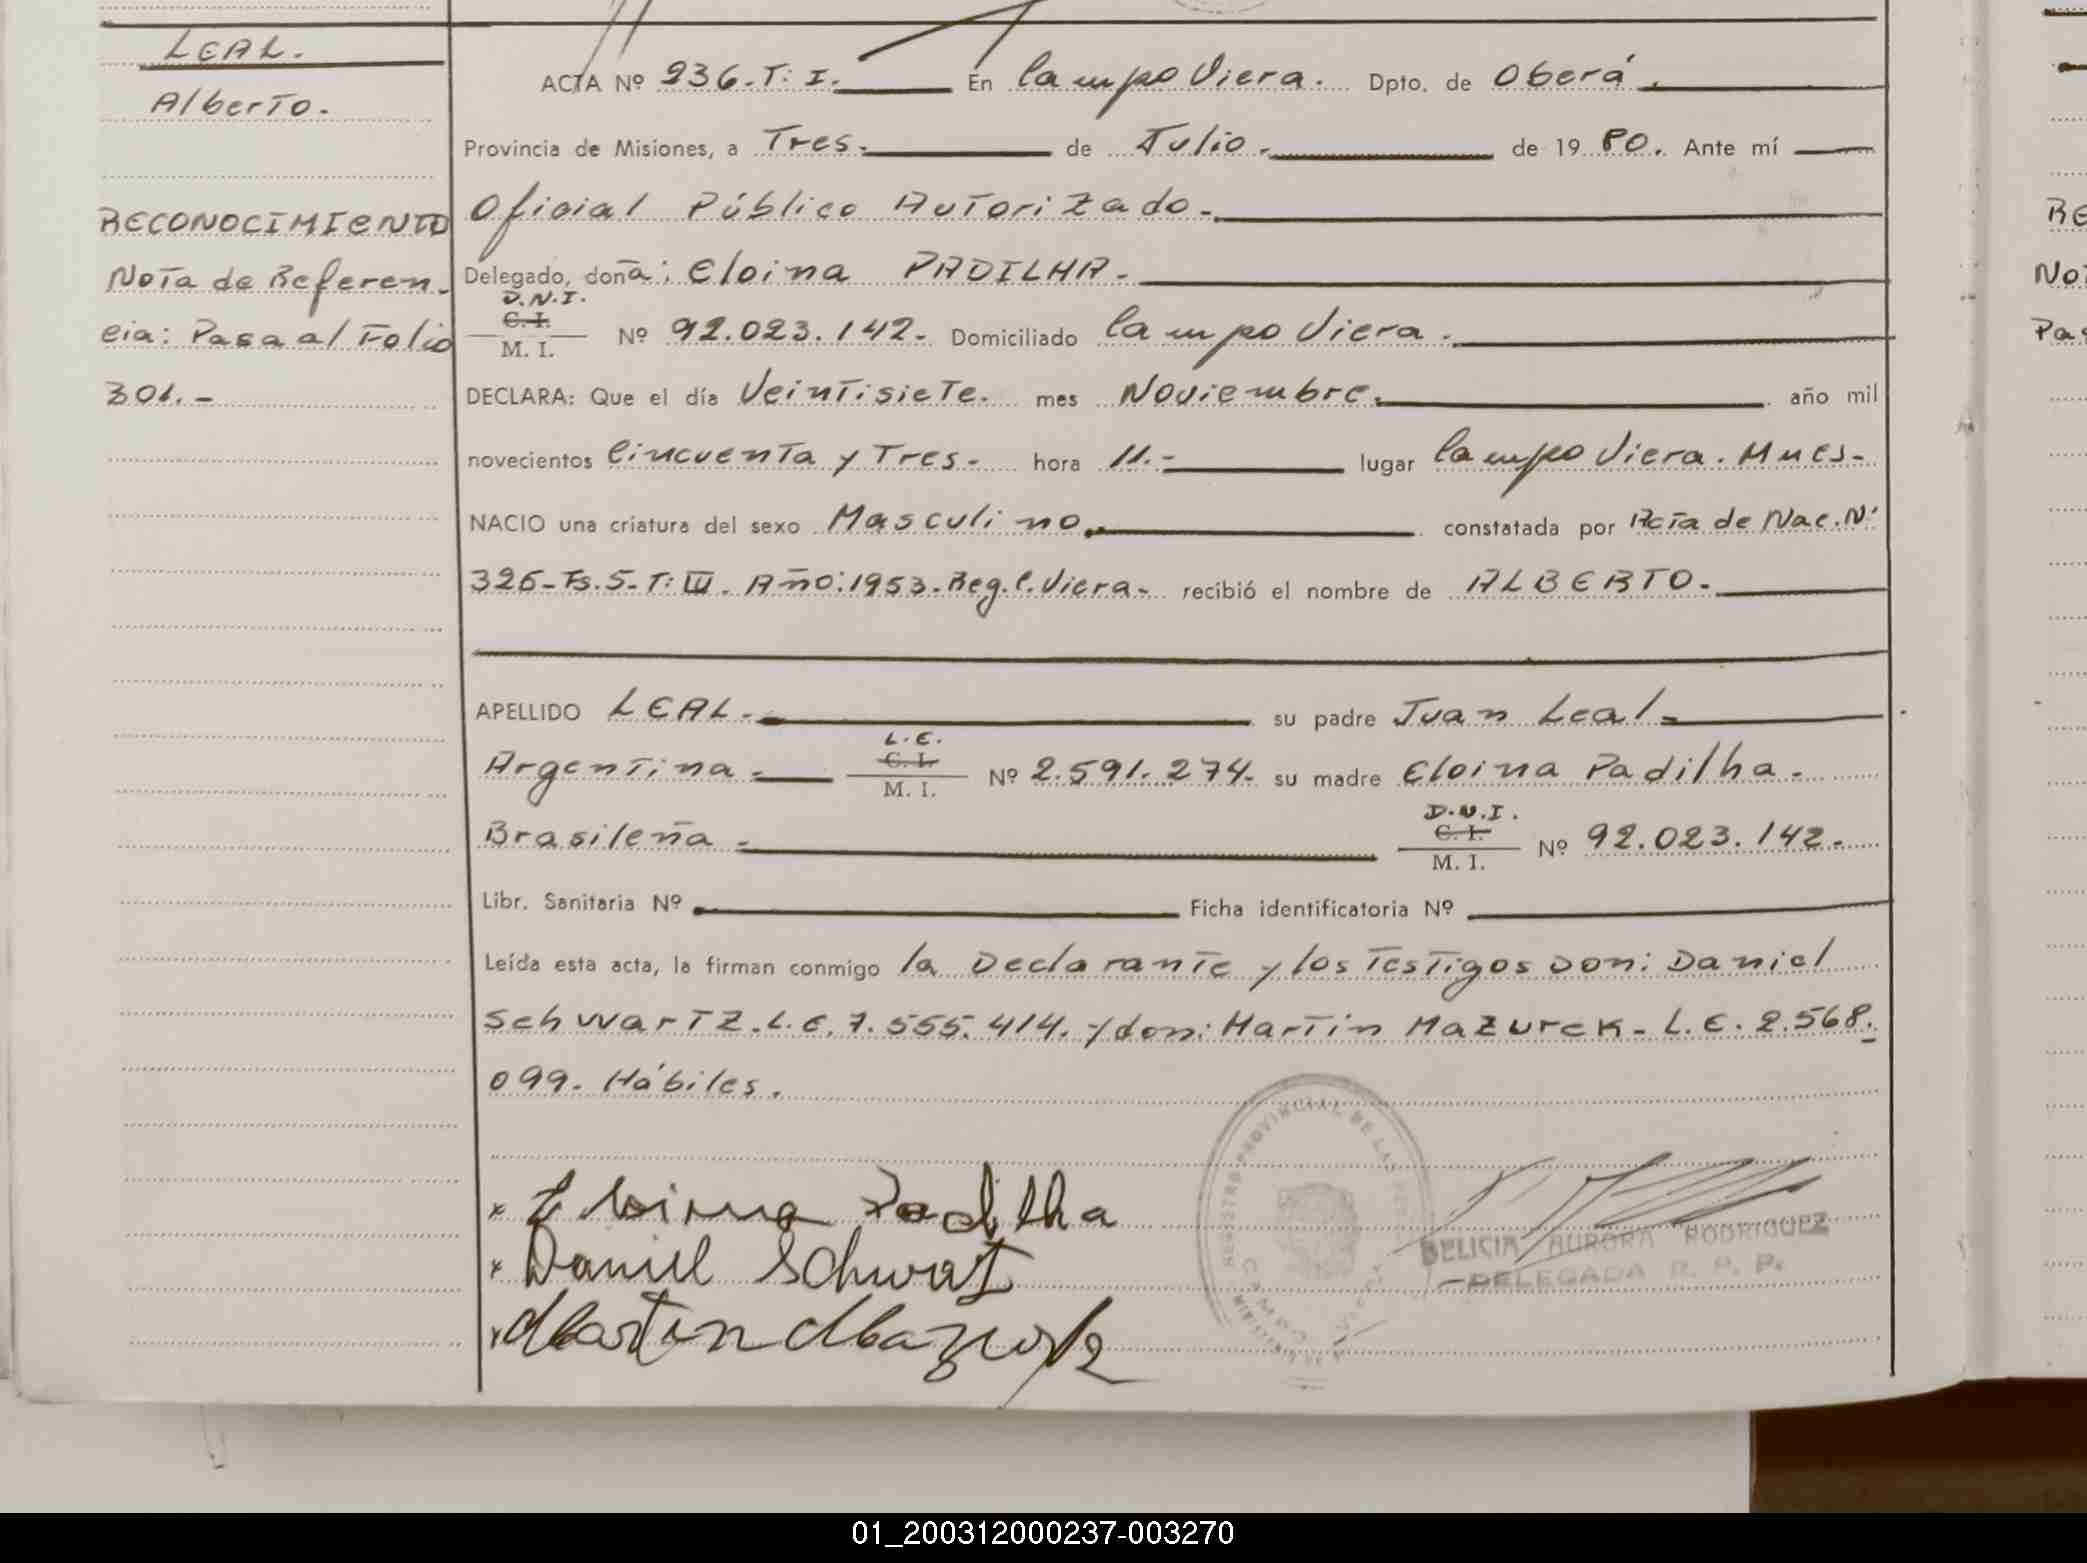 LEAL.
Alberto.
RECONOCIMIENTO
Nota de Referen-
cia: Pasa al Folio
301.-
ACTA Nº 236.T: I. En Campo Viera. Dpto. de Oberá.
Provincia de Misiones, a Tres. de Julio. de 19 80. Ante mí
Oficial Público Autorizado.
Delegado, doña: Eloina PADILHA.
D.N.I.
C. I.
M. I.
Nº 92.023.142. Domiciliado Campo Viera.
DECLARA: Que el día Veintisiete. mes Noviembre. año mil
novecientos Cincuenta y Tres. hora 11.- lugar Campo Viera. Mnes.
NACIO una criatura del sexo Masculino. constatada por Acta de Nac. Nº
326-Fs.5-T: III. Año:1953.Reg.C.Viera. recibió el nombre de ALBERTO.
APELLIDO LEAL. su padre Juan Leal
Argentina L.E. C. I. M. I. Nº 2.591.274. su madre Eloina Padilha.
Brasileña D.N.I. C. I. M. I. Nº 92.023.142.
Libr. Sanitaria Nº Ficha identificatoria Nº
Leída esta acta, la firman conmigo la Declarante y los Testigos Don: Daniel
Schwartz.L.E.7.555.414. y don: Martin Mazurek. L.E. 2.568.
099. Hábiles.
Eloina Padilha
Daniel Schwartz
Martin Mazurek
REGISTRO PROVINCIAL DE LAS
DELICIA AURORA RODRIGUEZ
DELEGADA R. P. P.
RE
Not
Pas
01_200312000237-003270